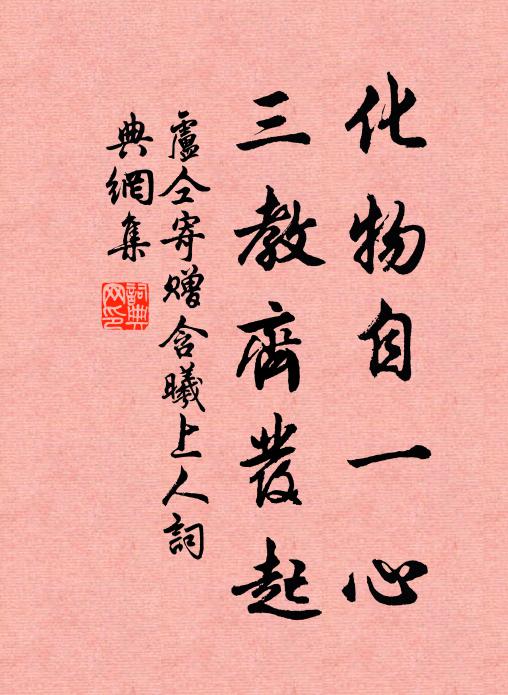 化物自一心
三教齊發起
盧仝寄贈含曦上人詞
典網集
詞典網印